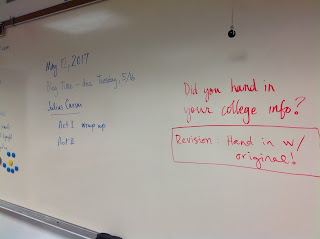 May 12, 2017
Big Time - due Tuesday, 5/16
Julius Caesar
Act I wrap up
Act II
Did you hand in
your college info?
Revision: Hand in w/
original!